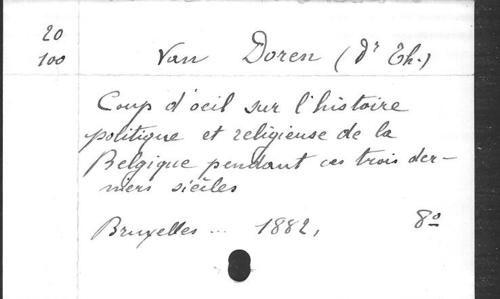 20
100
Van Doren (Dr Th.)
Coup d'oeil sur l'histoire
politique et religieuse de la
Belgique pendant ces trois der-
niers siècles
Bruxelles ... 1882, 8o